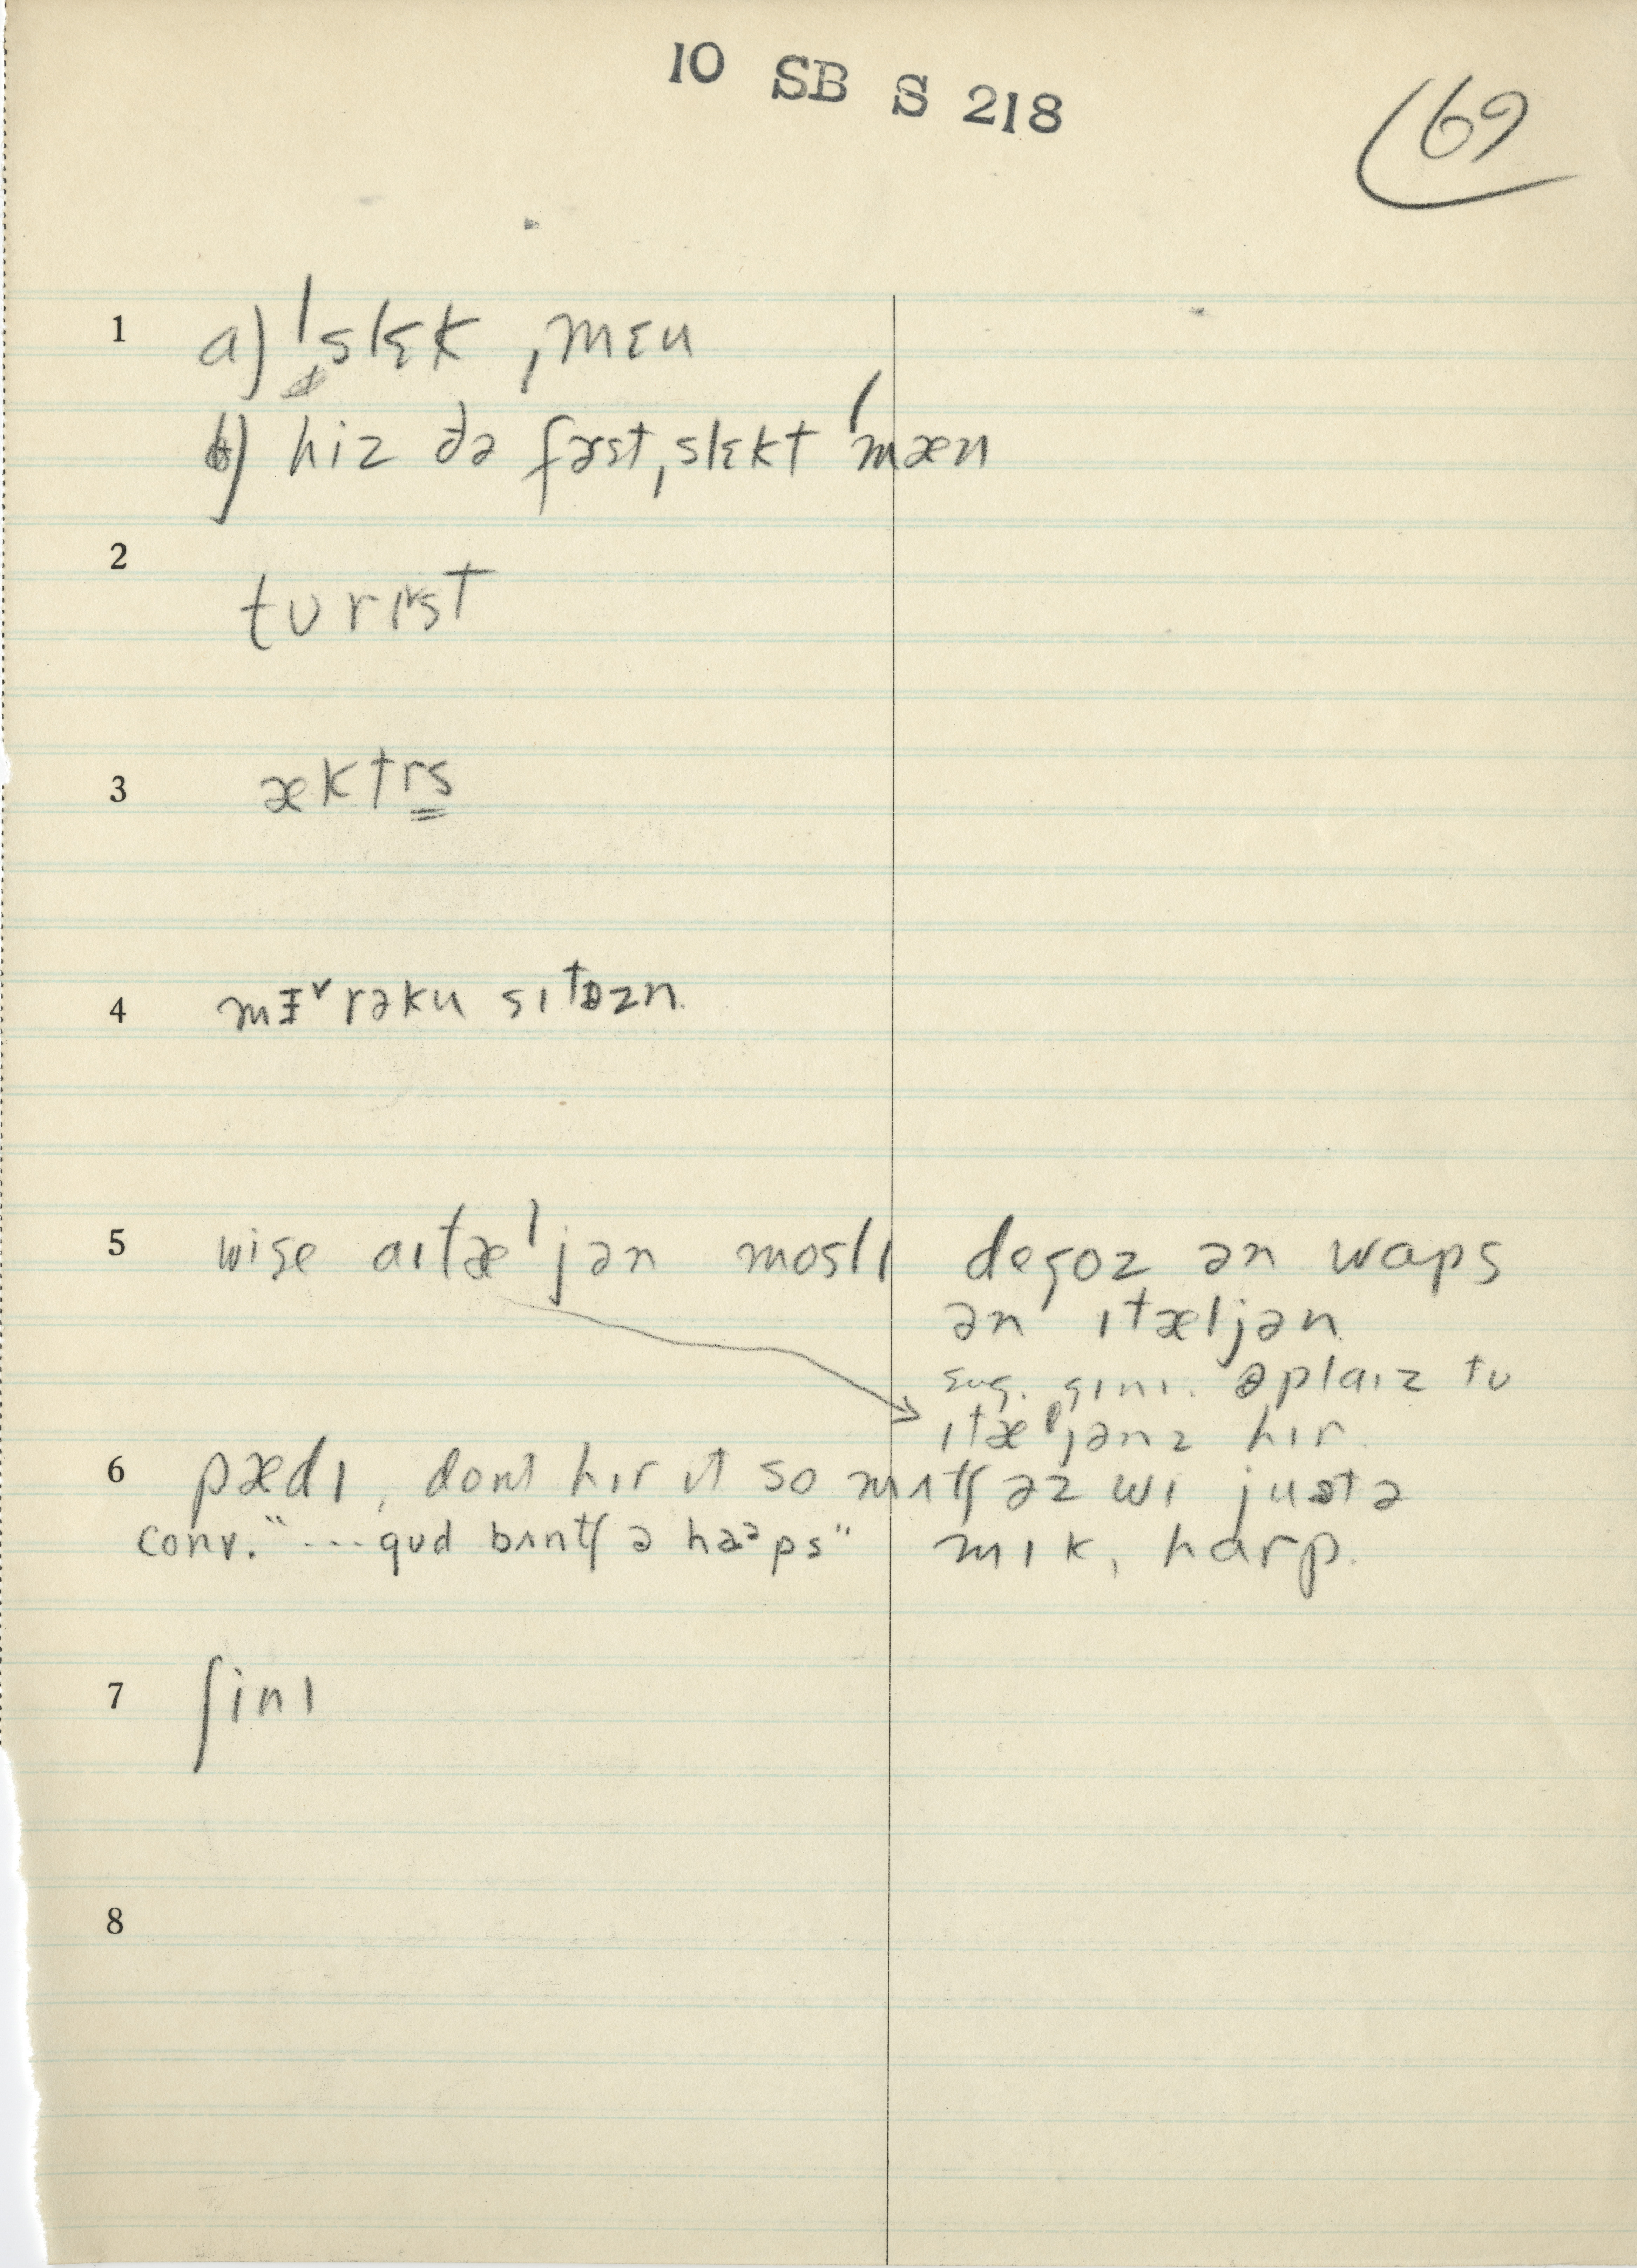 10 SB S 218
69
1 a) ˈslɛk ˌmɛn
b) hiz ðə fɜst ˌslɛkt ˈmæn
2 tʊrɪst
3 æktrs
4 rəkn sɪtəzn
5 wise aɪtæˈljən moslɪ
degoz ən waps
ən ɪtæljən
sug. gɪnɪ. əplaɪz tu
ɪtæljənz hɪr
6 pædɪ, dont hɪr ɪt so mʌtʃ əz wɪ justə
conv. "...gud bʌntʃ ə haəps" mɪk, harp.
7 ʃinɪ
8